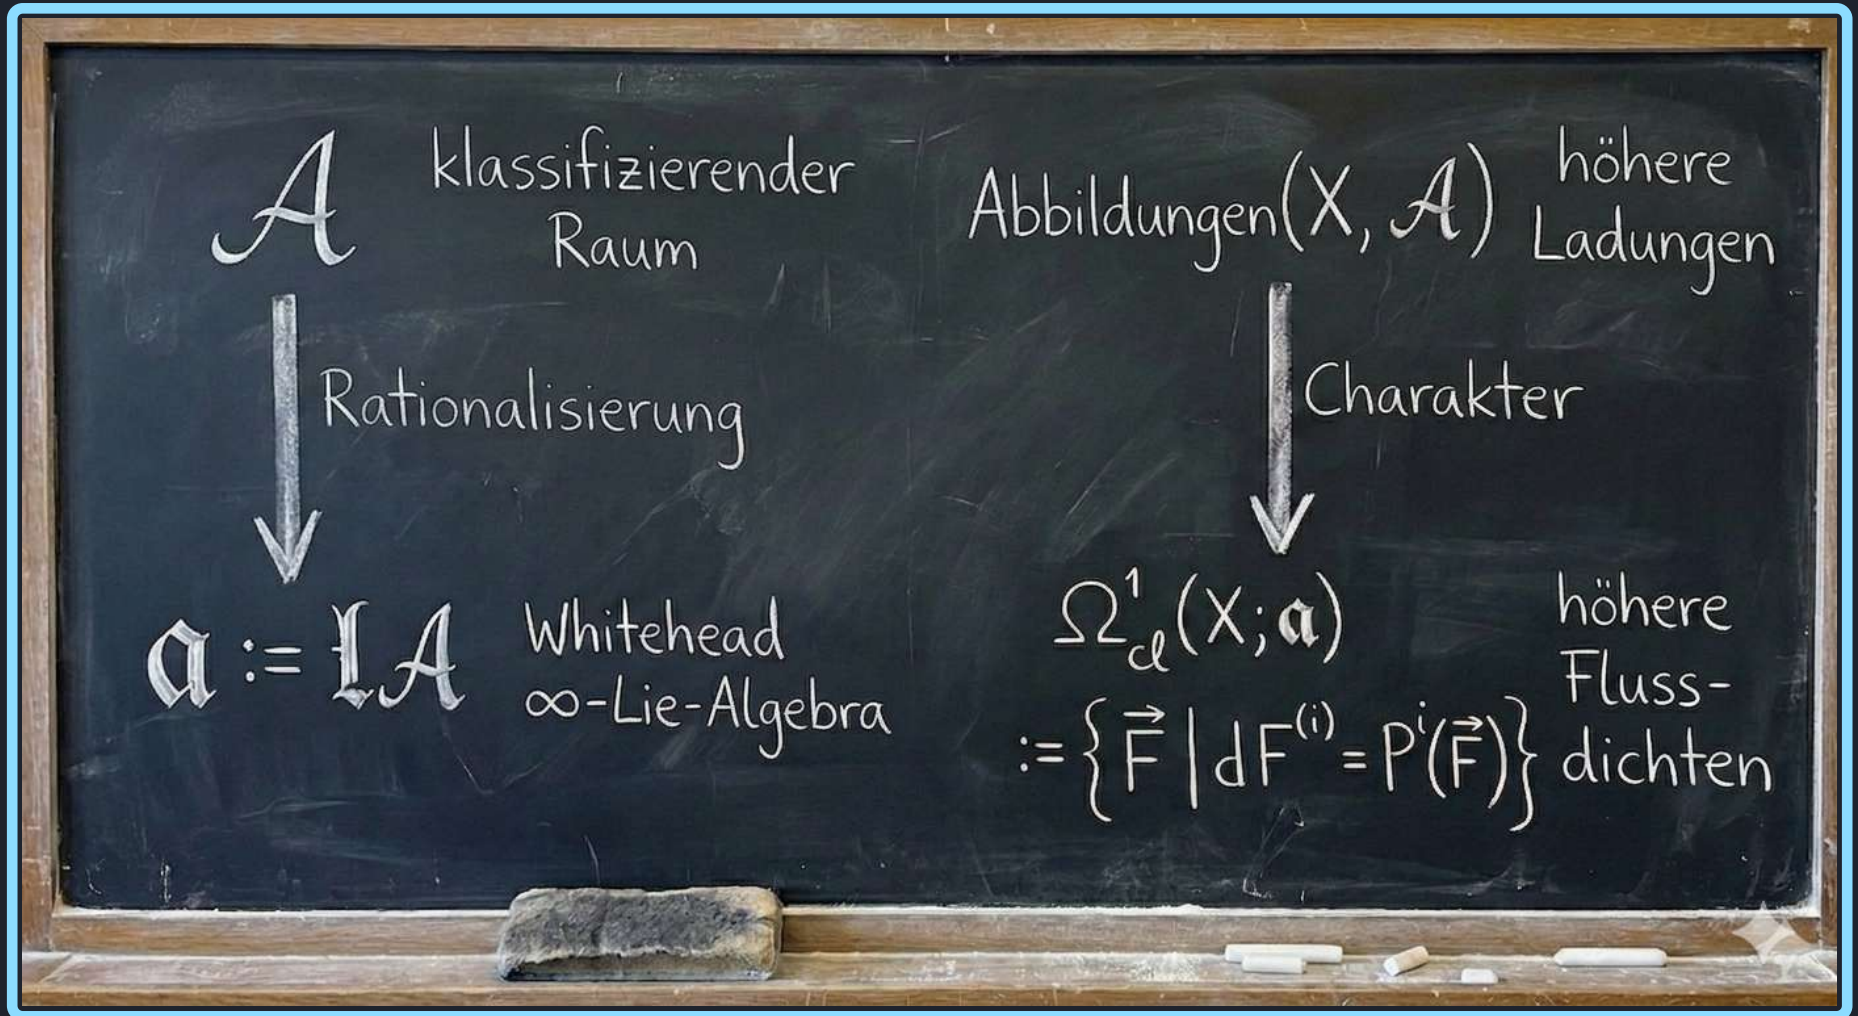 𝒜 klassifizierender
Raum
Rationalisierung
𝔞 := 𝔏𝒜 Whitehead
∞-Lie-Algebra
Abbildungen(X, 𝒜) höhere
Ladungen
Charakter
Ω¹_cl(X; 𝔞) höhere
Fluss-
:= {F⃗ | dF⁽ⁱ⁾ = Pⁱ(F⃗)} dichten